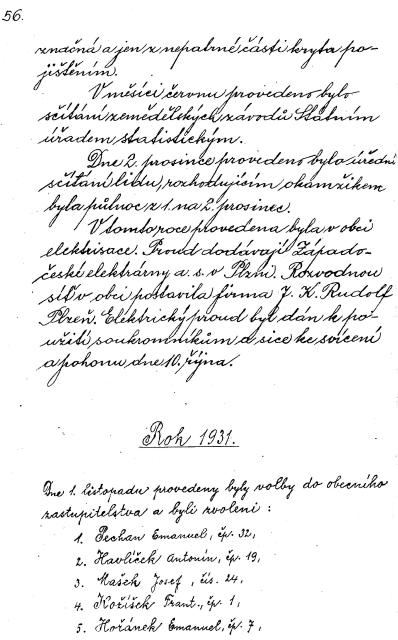 56.
značná a jen z nepatrné části kryta po-
jištěním.
V měsíci červnu provedeno bylo
sčítání zemědělských závodů Státním
úřadem statistickým.
Dne 2. prosince provedeno bylo úřední
sčítání lidu, rozhodujícím okamžikem
byla půlnoc z 1. na 2. prosinec.
V tomto roce provedena byla v obci
elektrisace. Proud dodávají Západo-
české elektrárny a. s. v Plzni. Rozvodnou
síť v obci postavila firma J. K. Rudolf
Plzeň. Elektrický proud byl dán k po-
užití soukromníkům a sice ke svícení
a pohonu dne 10. října.
Rok 1931.
Dne 1. listopadu provedeny byly volby do obecního
zastupitelstva a byli zvoleni :
1. Pechan Emanuel, čp. 32,
2. Havlíček Antonín, čp. 19,
3. Mašek Josef, čís. 24,
4. Kožíšek Frant., čp. 1,
5. Hořánek Emanuel, čp. 7,